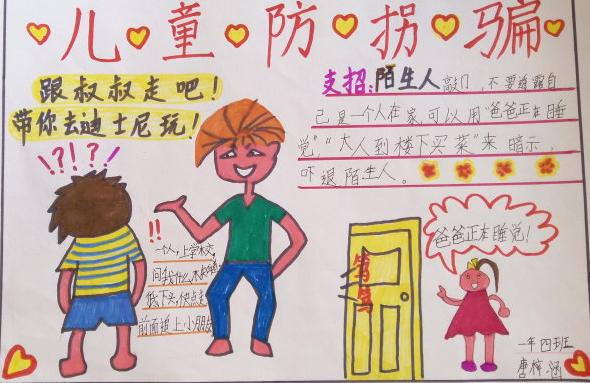 儿童防拐骗
跟叔叔走吧！
带你去迪士尼玩！
\?!?/
支招：陌生人敲门，不要透露自
己是一个人在家，可以用“爸爸正在睡
觉”，“大人到楼下买菜”来暗示，
吓退陌生人。
!!
一个人，上学校，
问我什么，不知道
低下头，快点走，
前面追上小朋友
笃笃
爸爸正在睡觉！
一年四班
唐梓涵